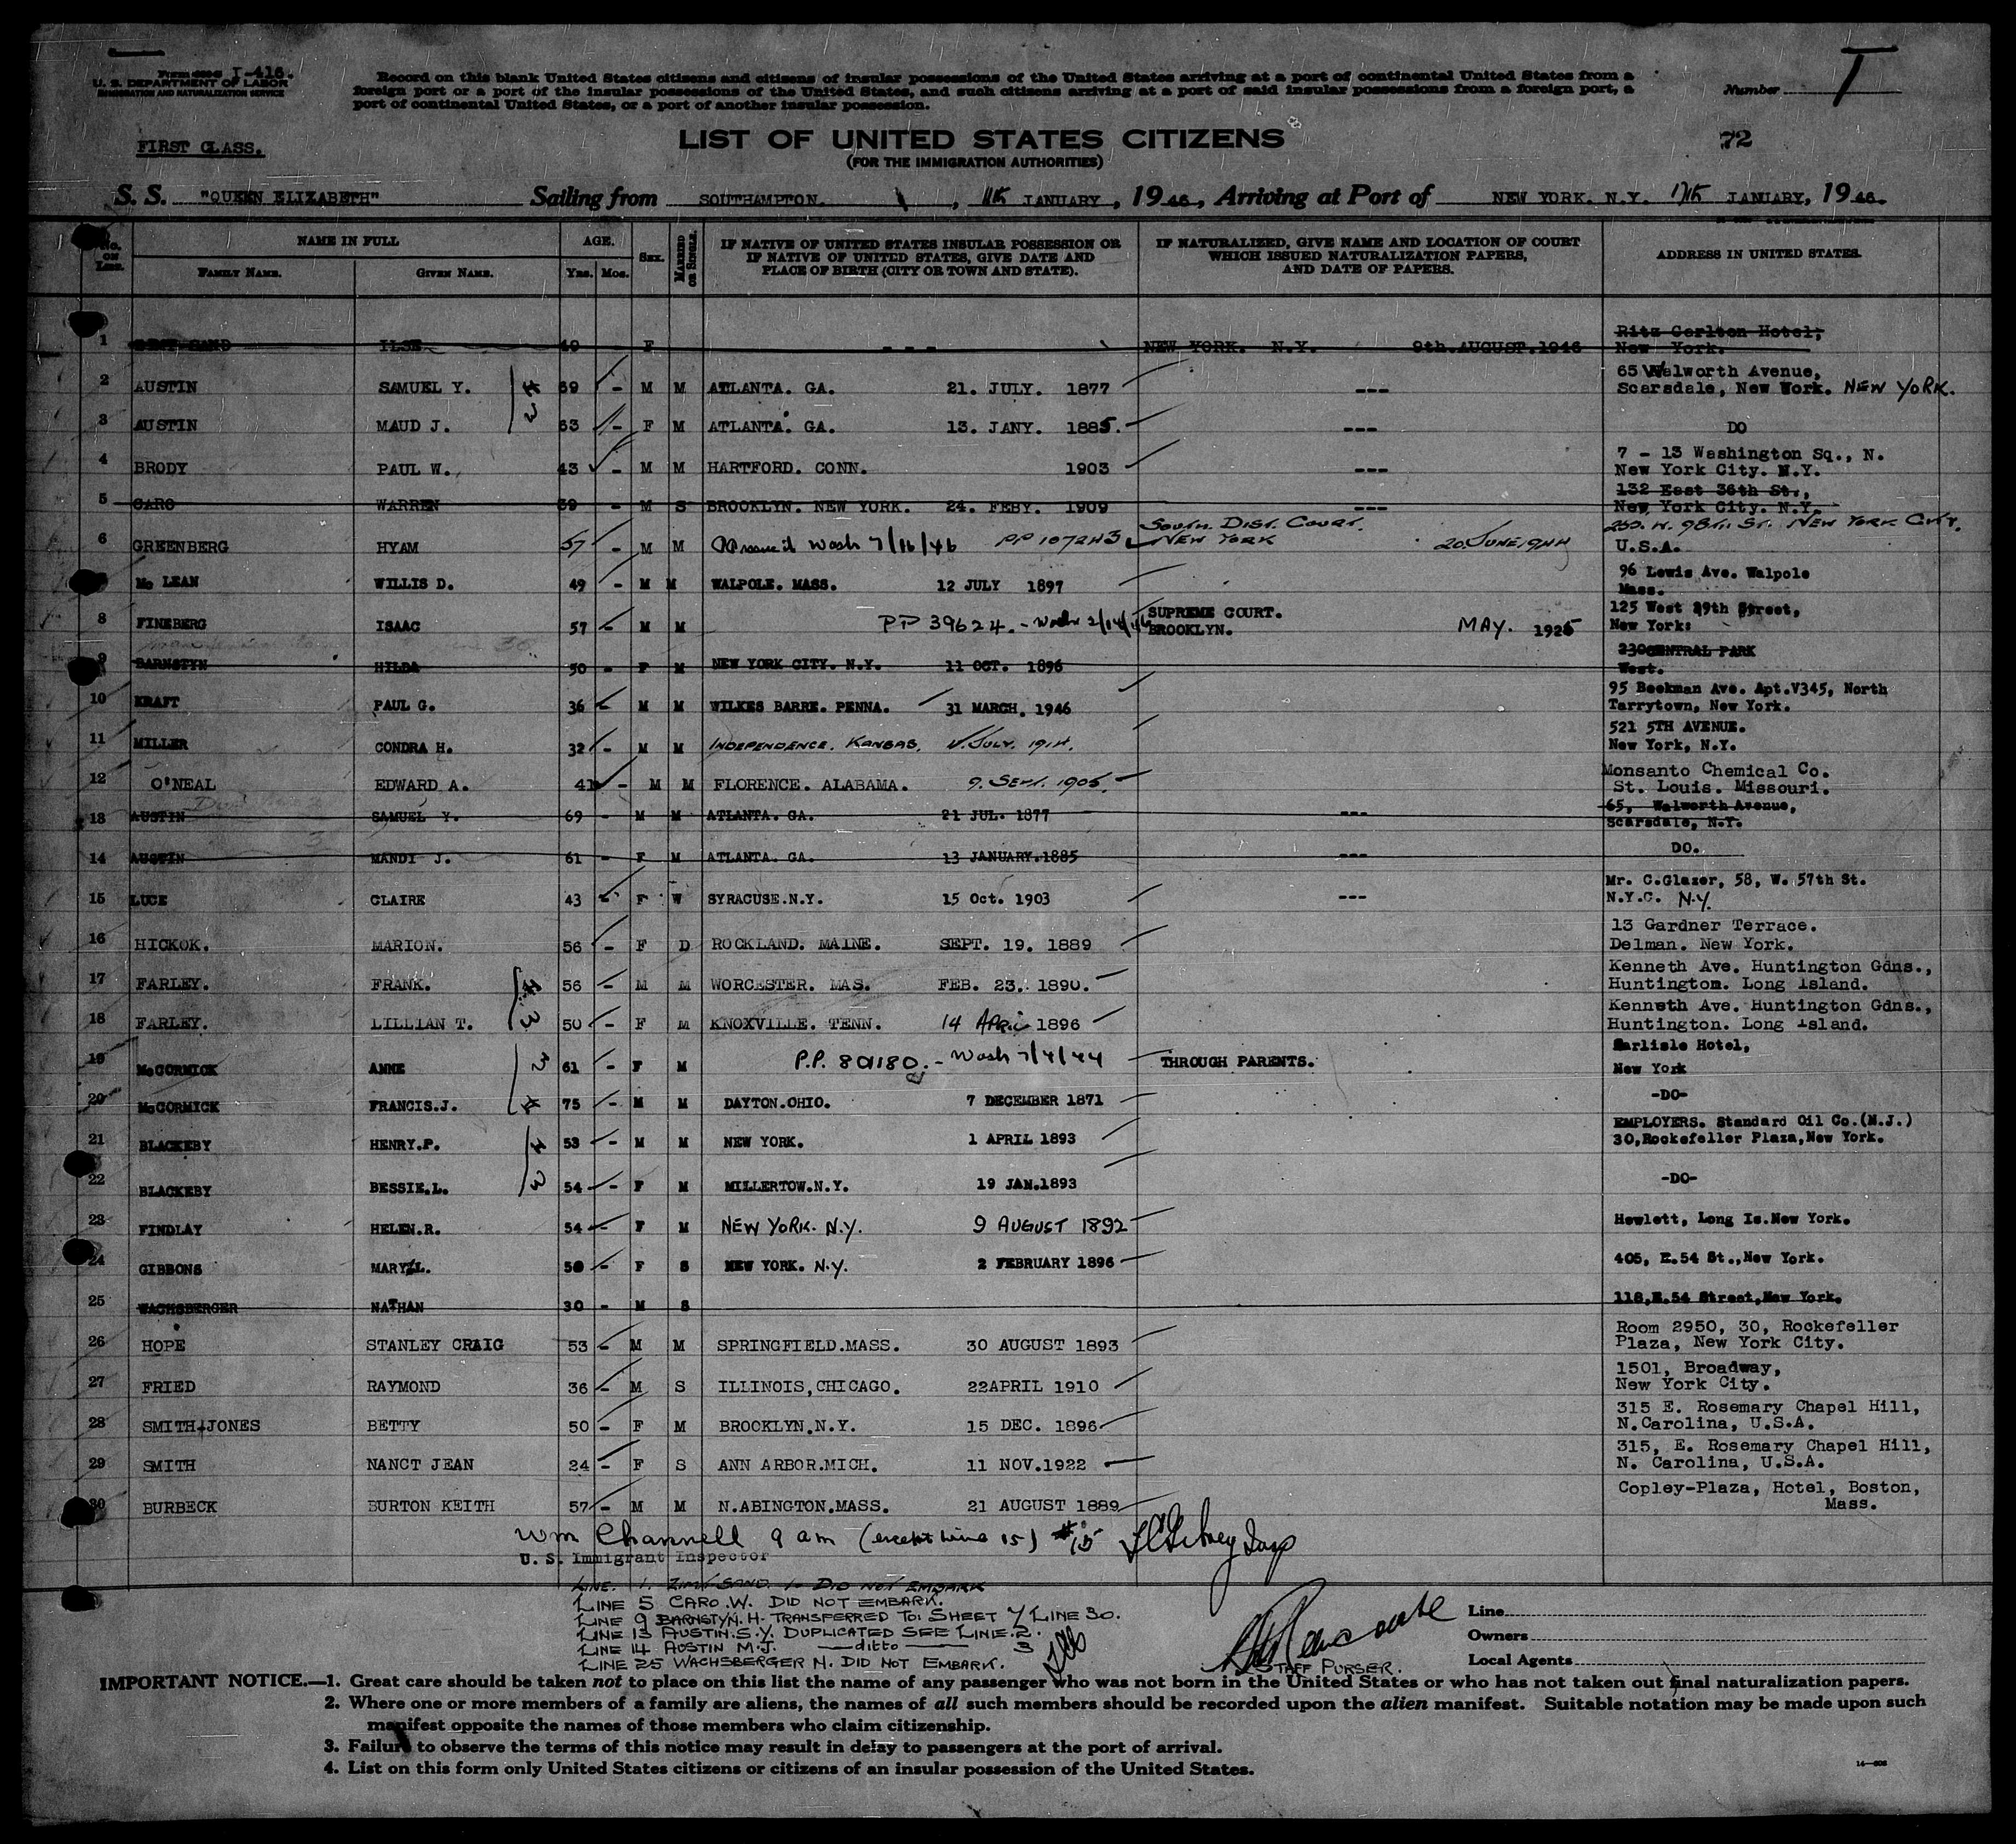 Form I-416.
U. S. DEPARTMENT OF LABOR
IMMIGRATION AND NATURALIZATION SERVICE
Record on this blank United States citizens and citizens of insular possessions of the United States arriving at a port of continental United States from a
foreign port or a port of the insular possessions of the United States, and such citizens arriving at a port of said insular possessions from a foreign port, a
port of continental United States, or a port of another insular possession.
Number T
FIRST CLASS.
LIST OF UNITED STATES CITIZENS
(FOR THE IMMIGRATION AUTHORITIES)
72
S. S. "QUEEN ELIZABETH" Sailing from SOUTHAMPTON. , JANUARY, 1946, Arriving at Port of NEW YORK. N.Y. JANUARY, 1946.
No. ON LIST. NAME IN FULL AGE. SEX. MARRIED OR SINGLE. IF NATIVE OF UNITED STATES INSULAR POSSESSION OR IF NATIVE OF UNITED STATES, GIVE DATE AND PLACE OF BIRTH (CITY OR TOWN AND STATE). IF NATURALIZED, GIVE NAME AND LOCATION OF COURT WHICH ISSUED NATURALIZATION PAPERS, AND DATE OF PAPERS. ADDRESS IN UNITED STATES.
FAMILY NAME. GIVEN NAME. Yrs. Mos.
1 SAND ILSE 49 F --- NEW YORK. N.Y. 9th.AUGUST.1946 Ritz Carlton Hotel, New York.
2 AUSTIN SAMUEL Y. 69 - M M ATLANTA. GA. 21. JULY. 1877 --- 65 Walworth Avenue, Scarsdale, New Work. NEW YORK.
3 AUSTIN MAUD J. 63 - F M ATLANTA. GA. 13. JANY. 1885. --- DO
4 BRODY PAUL W. 43 - M M HARTFORD. CONN. 1903 --- 7 - 13 Washington Sq., N. New York City. N.Y.
5 CARO WARREN 39 - M S BROOKLYN. NEW YORK. 24. FEBY. 1909 --- 132 East 36th St., New York City. N.Y.
6 GREENBERG HYAM 57 - M M Wash 7/16/46 PP 107243 SOUTH. DIST. COURT. NEW YORK 20.JUNE.1944 250. W. 98TH ST. NEW YORK CITY. U.S.A.
7 Mc LEAN WILLIS D. 49 - M M WALPOLE. MASS. 12 JULY 1897 96 Lewis Ave. Walpole Mass.
8 FINEBERG ISAAC 57 - M M PP 39624. - Wash SUPREME COURT. BROOKLYN. MAY. 1925 125 West 29th Street, New York:
9 BARNSTYN HILDA 50 - F M NEW YORK CITY. N.Y. 11 OCT. 1896 230CENTRAL PARK West.
10 KRAFT PAUL G. 36 - M M WILKES BARRE. PENNA. 31 MARCH. 1946 95 Beekman Ave. Apt.V345, North Tarrytown, New York.
11 MILLER CONDRA H. 32 - M M INDEPENDENCE. KANSAS. JULY. 1914. 521 5TH AVENUE. New York, N.Y.
12 O'NEAL EDWARD A. 41 - M M FLORENCE. ALABAMA. 9. SEPT. 1905. Monsanto Chemical Co. St. Louis. Missouri.
13 AUSTIN SAMUEL Y. 69 - M M ATLANTA. GA. 21 JUL. 1877 --- 65, Walworth Avenue, Scarsdale, N.Y.
14 AUSTIN MANDY J. 61 - F M ATLANTA. GA. 13 JANUARY.1885 --- DO.
15 LUCE CLAIRE 43 - F W SYRACUSE.N.Y. 15 Oct. 1903 --- Mr. C.Glazer, 58, W. 57th St. N.Y.C. N.Y.
16 HICKOK. MARION. 56 - F D ROCKLAND. MAINE. SEPT. 19. 1889 13 Gardner Terrace. Delman. New York.
17 FARLEY. FRANK. 56 - M M WORCESTER. MAS. FEB. 23. 1890. Kenneth Ave. Huntington Gdns., Huntington. Long Island.
18 FARLEY. LILLIAN T. 50 - F M KNOXVILLE. TENN. 14 APRIL 1896 Kenneth Ave. Huntington Gdns., Huntington. Long Island.
19 McCORMICK ANNE 61 - F M P.P. 80180. - Wash 7/4/44 THROUGH PARENTS. Carlisle Hotel, New York
20 McCORMICK FRANCIS.J. 75 - M M DAYTON.OHIO. 7 DECEMBER 1871 -DO-
21 BLACKEBY HENRY.P. 53 - M M NEW YORK. 1 APRIL 1893 EMPLOYERS. Standard Oil Co.(N.J.) 30,Rockefeller Plaza,New York.
22 BLACKEBY BESSIE.L. 54 - F M MILLERTOW.N.Y. 19 JAN.1893 -DO-
23 FINDLAY HELEN.R. 54 - F M NEW YORK. N.Y. 9 AUGUST 1892 Hewlett, Long Is.New York.
24 GIBBONS MARY.L. 50 - F S NEW YORK. N.Y. 2 FEBRUARY 1896 405, E.54 St.,New York.
25 WACHSBERGER NATHAN 30 - M S 118,E.54 Street,New York.
26 HOPE STANLEY CRAIG 53 - M M SPRINGFIELD.MASS. 30 AUGUST 1893 Room 2950, 30, Rockefeller Plaza, New York City.
27 FRIED RAYMOND 36 - M S ILLINOIS,CHICAGO. 22APRIL 1910 1501, Broadway, New York City.
28 SMITH-JONES BETTY 50 - F M BROOKLYN.N.Y. 15 DEC. 1896 315 E. Rosemary Chapel Hill, N.Carolina, U.S.A.
29 SMITH NANCT JEAN 24 - F S ANN ARBOR.MICH. 11 NOV.1922 315, E. Rosemary Chapel Hill, N. Carolina, U.S.A.
30 BURBECK BURTON KEITH 57 - M M N.ABINGTON.MASS. 21 AUGUST 1889 Copley-Plaza, Hotel, Boston, Mass.
Wm Channell 9 am (except line 15) #15
U. S. Immigrant Inspector
LINE. 1. SAND. I- DID NOT EMBARK
LINE 5 CARO.W. DID NOT EMBARK.
LINE 9 BARNSTYN.H. TRANSFERRED TO: SHEET 7 LINE 30.
LINE 13 AUSTIN.S.Y. DUPLICATED SEE LINE.2.
LINE 14 AUSTIN M.J. —ditto— 3
LINE 25 WACHSBERGER N. DID NOT EMBARK.
STAFF PURSER.
Line
Owners
Local Agents
IMPORTANT NOTICE.—1. Great care should be taken not to place on this list the name of any passenger who was not born in the United States or who has not taken out final naturalization papers.
2. Where one or more members of a family are aliens, the names of all such members should be recorded upon the alien manifest. Suitable notation may be made upon such
manifest opposite the names of those members who claim citizenship.
3. Failure to observe the terms of this notice may result in delay to passengers at the port of arrival.
4. List on this form only United States citizens or citizens of an insular possession of the United States.